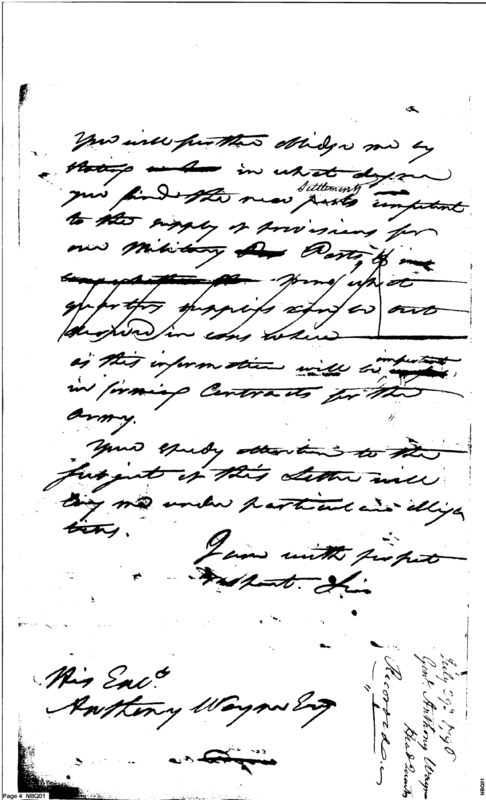 You will further oblige me by
stating in what degree
you find the new Settlements competent
to the supply of provisions for
our Military Posts,
from what
quarters supplies can be
in case where
as this information will be important
in forming Contracts for the
Army.
Your speedy attention to the
subject of this Letter will
lay me under particular obliga
tions.
I am with perfect
respect. Sir
His Exc^y
Anthony Wayne Esq
July 29th 1796
Genl. Anthony Wayne
Head Quarters
Recorded
Page 4 NBQ01
NBQ01